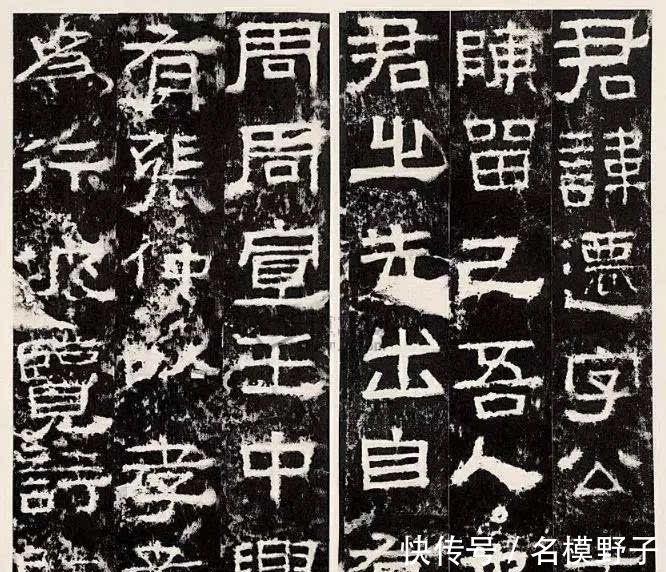 君諱遷字公
陳留己吾人
君之先出自有
周周宣王中興
有張仲以孝
為行披覽詩
快传号 / 名模野子